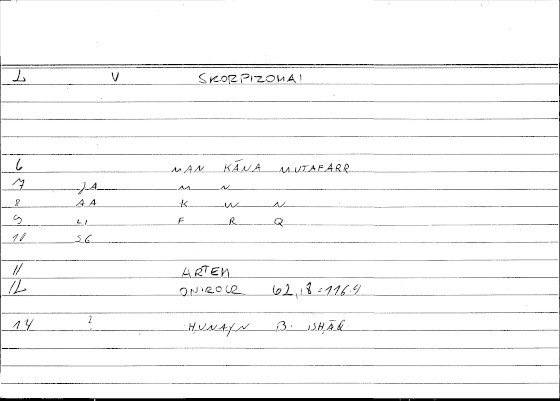 1 V SKORPIZOMAI
6 MAN KĀNA MUTAFARR
7 JA M N
8 AA K W N
9 LI F R Q
10 SG
11 ARTEM
12 ONIROCR 62,18=116.9
14 ? HUNAYN B. ISḤĀQ